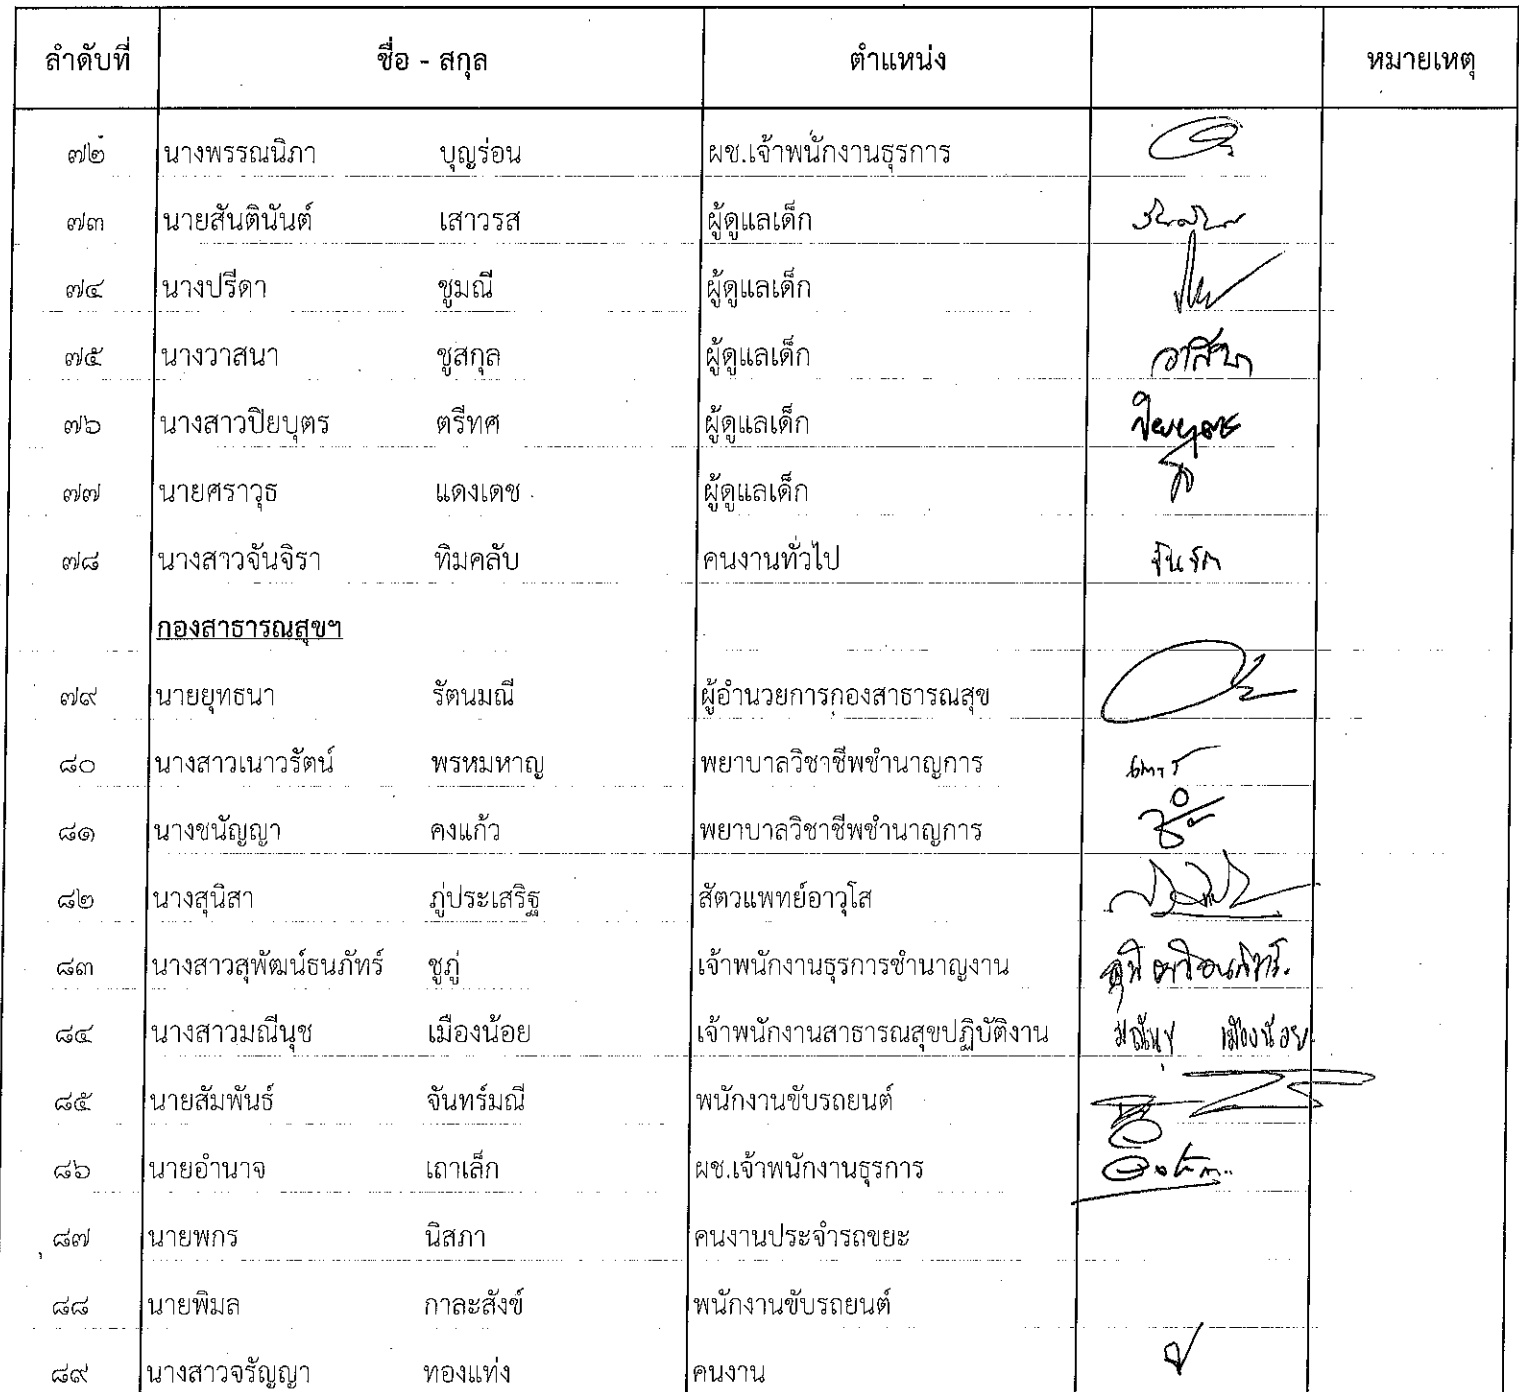 ลำดับที่ ชื่อ - สกุล ตำแหน่ง หมายเหตุ
๗๒ นางพรรณนิภา บุญร่อน ผช.เจ้าพนักงานธุรการ
๗๓ นายสันตินันต์ เสาวรส ผู้ดูแลเด็ก
๗๔ นางปรีดา ชูมณี ผู้ดูแลเด็ก
๗๕ นางวาสนา ชูสกุล ผู้ดูแลเด็ก วาสนา
๗๖ นางสาวปิยบุตร ตรีทศ ผู้ดูแลเด็ก ปิยบุตร
๗๗ นายศราวุธ แดงเดช ผู้ดูแลเด็ก
๗๘ นางสาวจันจิรา ทิมคลับ คนงานทั่วไป
กองสาธารณสุขฯ
๗๙ นายยุทธนา รัตนมณี ผู้อำนวยการกองสาธารณสุข
๘๐ นางสาวเนาวรัตน์ พรหมหาญ พยาบาลวิชาชีพชำนาญการ
๘๑ นางชนัญญา คงแก้ว พยาบาลวิชาชีพชำนาญการ
๘๒ นางสุนิสา ภู่ประเสริฐ สัตวแพทย์อาวุโส
๘๓ นางสาวสุพัฒน์ธนภัทร์ ชูภู่ เจ้าพนักงานธุรการชำนาญงาน
๘๔ นางสาวมณีนุช เมืองน้อย เจ้าพนักงานสาธารณสุขปฏิบัติงาน มณีนุช เมืองน้อย
๘๕ นายสัมพันธ์ จันทร์มณี พนักงานขับรถยนต์
๘๖ นายอำนาจ เถาเล็ก ผช.เจ้าพนักงานธุรการ
๘๗ นายพกร นิสภา คนงานประจำรถขยะ
๘๘ นายพิมล กาละสังข์ พนักงานขับรถยนต์
๘๙ นางสาวจรัญญา ทองแท่ง คนงาน